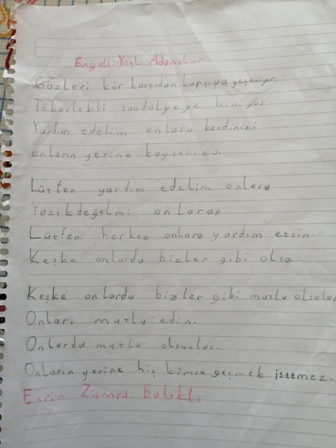 Engelli Yaşlı Adamlar
Gözleri kör karşıdan karşıya geçemiyor
Tekerlekli sandalyeye biniyor
Yardım edelim onlara kendinizi
onların yerine koysanıza.
Lütfen yardım edelim onlara
Yazıkdeğilmi onlara
Lütfen herkes onlara yardım etsin.
Keşke onlarda bizler gibi olsa
Keşke onlarda bizler gibi mutlu olsalar
Onları mutlu edin.
Onlarda mutlu olsunlar.
Onların yerine hiç kimse geçmek istemez.
Ecrin Zümra